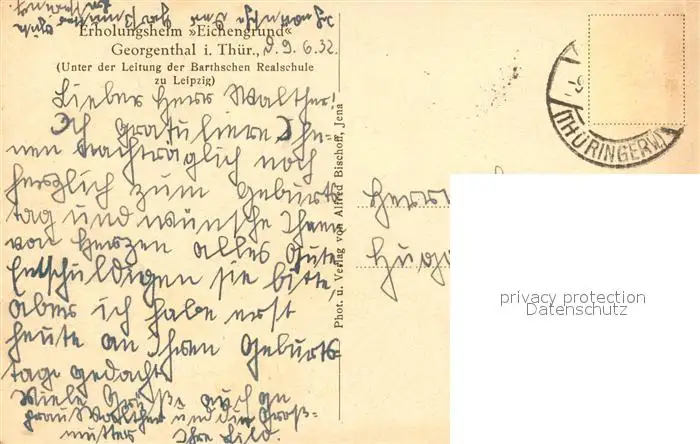 Erholungsheim »Eichengrund«
Georgenthal i. Thür., d. 9. 6. 32.
(Unter der Leitung der Barthschen Realschule
zu Leipzig)
Lieber Herr Walther!
Ich gratuliere Ih-
nen nachträglich noch
herzlich zum Geburts
tag und wünsche Ihnen
von Herzen alles Gute
Entschuldigen sie bitte,
aber ich habe erst
heute an Ihren Geburts-
tage gedacht
Viele Grüße auch an
Frau Walther und die Groß-
mutter Ihre Lilo.
Phot. u. Verlag von Alfred Bischoff, Jena
THÜRINGERW
Herrn
Hugo
privacy protection
Datenschutz